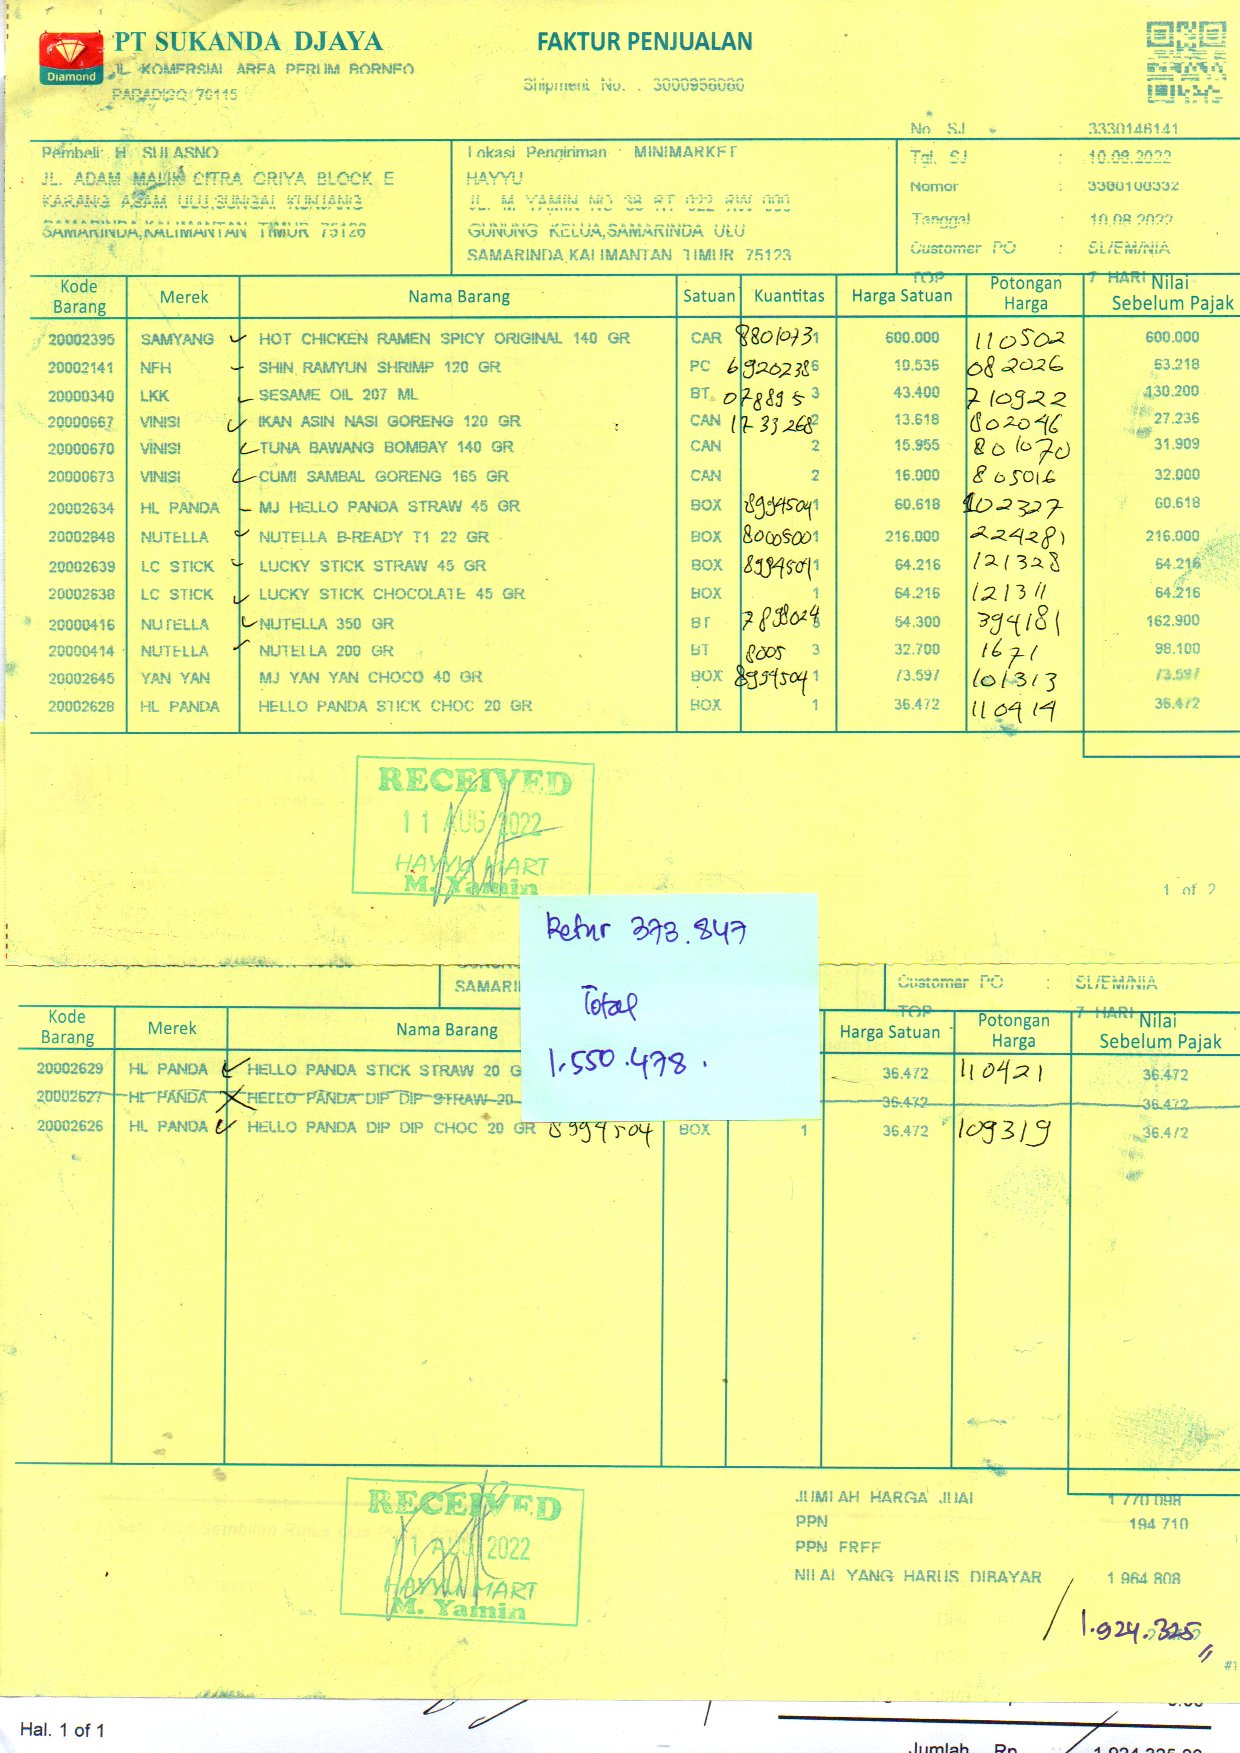 Diamond
PT SUKANDA DJAYA
JL. KOMERSIAL AREA PERUM BORNEO
PARADISO 76115
FAKTUR PENJUALAN
Shipment No. : 3000958086
No SJ : 3330146141
Pembeli: H SULASNO
JL. ADAM MALIK CITRA GRIYA BLOCK E
KARANG ASAM ULU,SUNGAI KUNJANG
SAMARINDA,KALIMANTAN TIMUR 75126
Lokasi Pengiriman : MINIMARKET
HAYYU
JL. M YAMIN NO 38 RT 022 RW 000
GUNUNG KELUA,SAMARINDA ULU
SAMARINDA,KALIMANTAN TIMUR 75123
Tgl. SJ : 10.08.2022
Nomor : 3380100332
Tanggal : 10.08.2022
Customer PO : SL/EM/NIA
TOP 7 HARI
Kode Barang Merek Nama Barang Satuan Kuantitas Harga Satuan Potongan Harga Nilai Sebelum Pajak
20002395 SAMYANG HOT CHICKEN RAMEN SPICY ORIGINAL 140 GR CAR 8801073 1 600.000 110502 600.000
20002141 NFH SHIN RAMYUN SHRIMP 120 GR PC 6920238 6 10.536 082026 63.218
20000340 LKK SESAME OIL 207 ML BT 078895 3 43.400 710922 130.200
20000667 VINISI IKAN ASIN NASI GORENG 120 GR CAN 1733268 2 13.618 802046 27.236
20000670 VINISI TUNA BAWANG BOMBAY 140 GR CAN 2 15.955 801070 31.909
20000673 VINISI CUMI SAMBAL GORENG 165 GR CAN 2 16.000 805016 32.000
20002634 HL PANDA MJ HELLO PANDA STRAW 45 GR BOX 8994504 1 60.618 102327 60.618
20002848 NUTELLA NUTELLA B-READY T1 22 GR BOX 8000500 1 216.000 224281 216.000
20002639 LC STICK LUCKY STICK STRAW 45 GR BOX 8994504 1 64.216 121328 64.216
20002638 LC STICK LUCKY STICK CHOCOLATE 45 GR BOX 1 64.216 121311 64.216
20000416 NUTELLA NUTELLA 350 GR BT 7898024 3 54.300 394181 162.900
20000414 NUTELLA NUTELLA 200 GR BT 8005 3 32.700 1671 98.100
20002645 YAN YAN MJ YAN YAN CHOCO 40 GR BOX 8994504 1 73.597 101313 73.597
20002628 HL PANDA HELLO PANDA STICK CHOC 20 GR BOX 1 36.472 110414 36.472
RECEIVED
11 AUG 2022
HAYYU MART
M. Yamin
1 of 2
Retur 373.847
Total
1.550.478.
SAMARI
Customer PO : SL/EM/NIA
TOP 7 HARI
Kode Barang Merek Nama Barang Harga Satuan Potongan Harga Nilai Sebelum Pajak
20002629 HL PANDA HELLO PANDA STICK STRAW 20 G 36.472 110421 36.472
20002627 HL PANDA HELLO PANDA DIP DIP STRAW 20 36.472 36.472
20002626 HL PANDA HELLO PANDA DIP DIP CHOC 20 GR 8994504 BOX 1 36.472 109319 36.472
RECEIVED
11 AUG 2022
HAYYU MART
M. Yamin
JUMLAH HARGA JUAL 1 770 098
PPN 194 710
PPN FREE
NILAI YANG HARUS DIBAYAR 1 964 808
1.924.325
#1
Hal. 1 of 1
Jumlah Rp 1.924.325,00